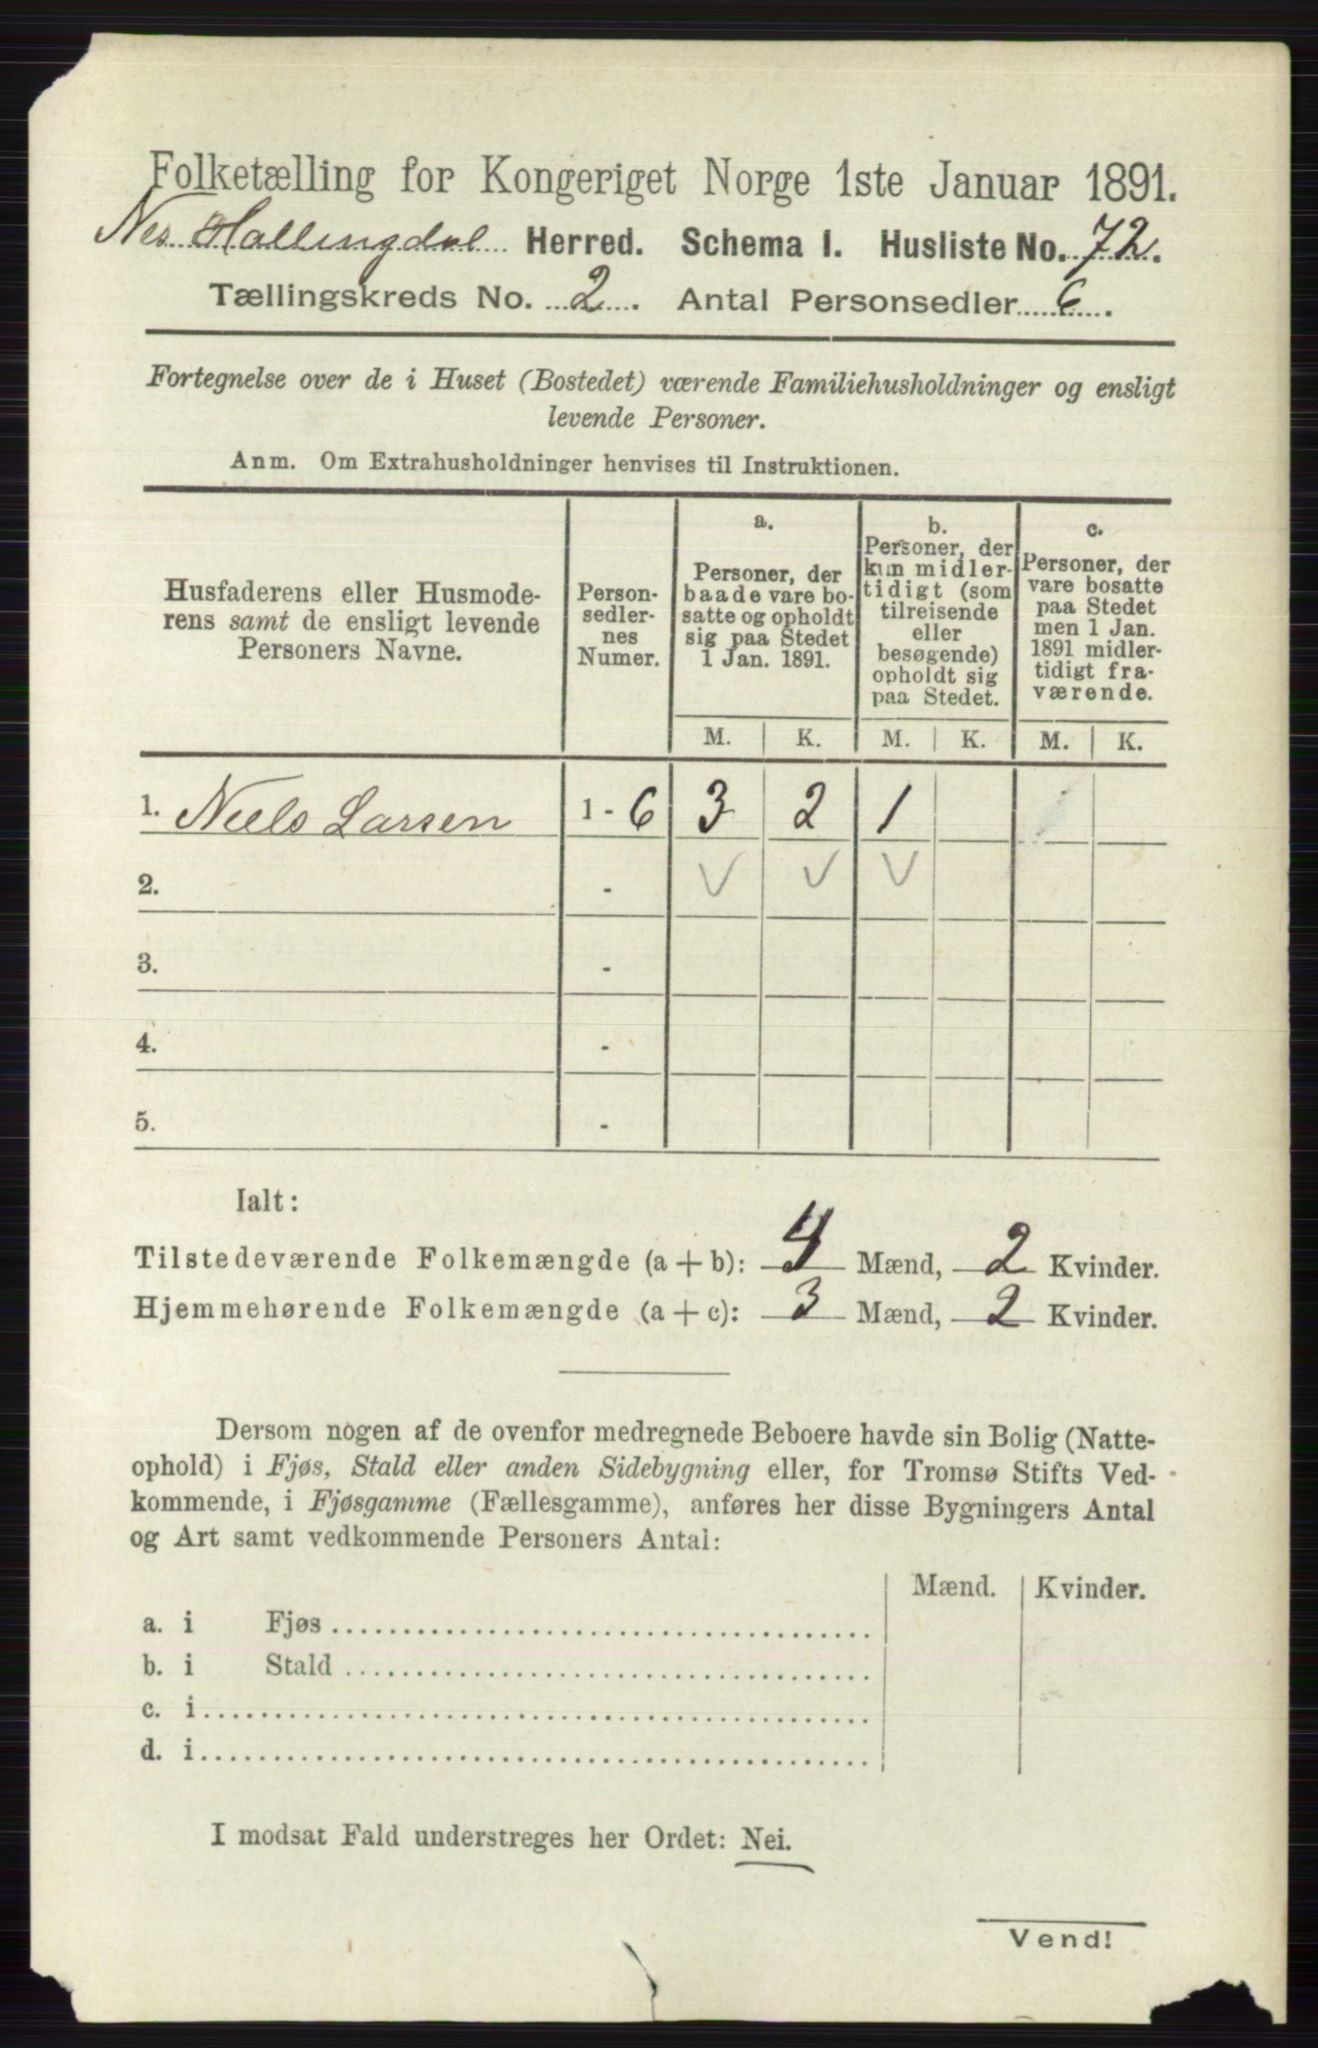 Folketælling for Kongeriget Norge 1ste Januar 1891.
Nes Hallingdal Herred. Schema I. Husliste No. 72.
Tællingskreds No. 2. Antal Personsedler 6.
Fortegnelse over de i Huset (Bostedet) værende Familiehusholdninger og ensligt
levende Personer.
Anm. Om Extrahusholdninger henvises til Instruktionen.
Husfaderens eller Husmode-
rens samt de ensligt levende
Personers Navne.
Person-
sedler-
nes
Numer.
a.
Personer, der
baade vare bo-
satte og opholdt
sig paa Stedet
1 Jan. 1891.
b.
Personer, der
kun midler-
tidigt (som
tilreisende
eller
besøgende)
opholdt sig
paa Stedet.
c.
Personer, der
vare bosatte
paa Stedet
men 1 Jan.
1891 midler-
tidigt fra-
værende.
M. K. M. K. M. K.
1. Niels Larsen 1 - 6 3 2 1
2. - V V V
3. -
4. -
5. -
Ialt:
Tilstedeværende Folkemængde (a + b): 4 Mænd, 2 Kvinder.
Hjemmehørende Folkemængde (a + c): 3 Mænd, 2 Kvinder.
Dersom nogen af de ovenfor medregnede Beboere havde sin Bolig (Natte-
ophold) i Fjøs, Stald eller anden Sidebygning eller, for Tromsø Stifts Ved-
kommende, i Fjøsgamme (Fællesgamme), anføres her disse Bygningers Antal
og Art samt vedkommende Personers Antal:
Mænd. Kvinder.
a. i Fjøs
b. i Stald
c. i
d. i
I modsat Fald understreges her Ordet: Nei.
Vend!